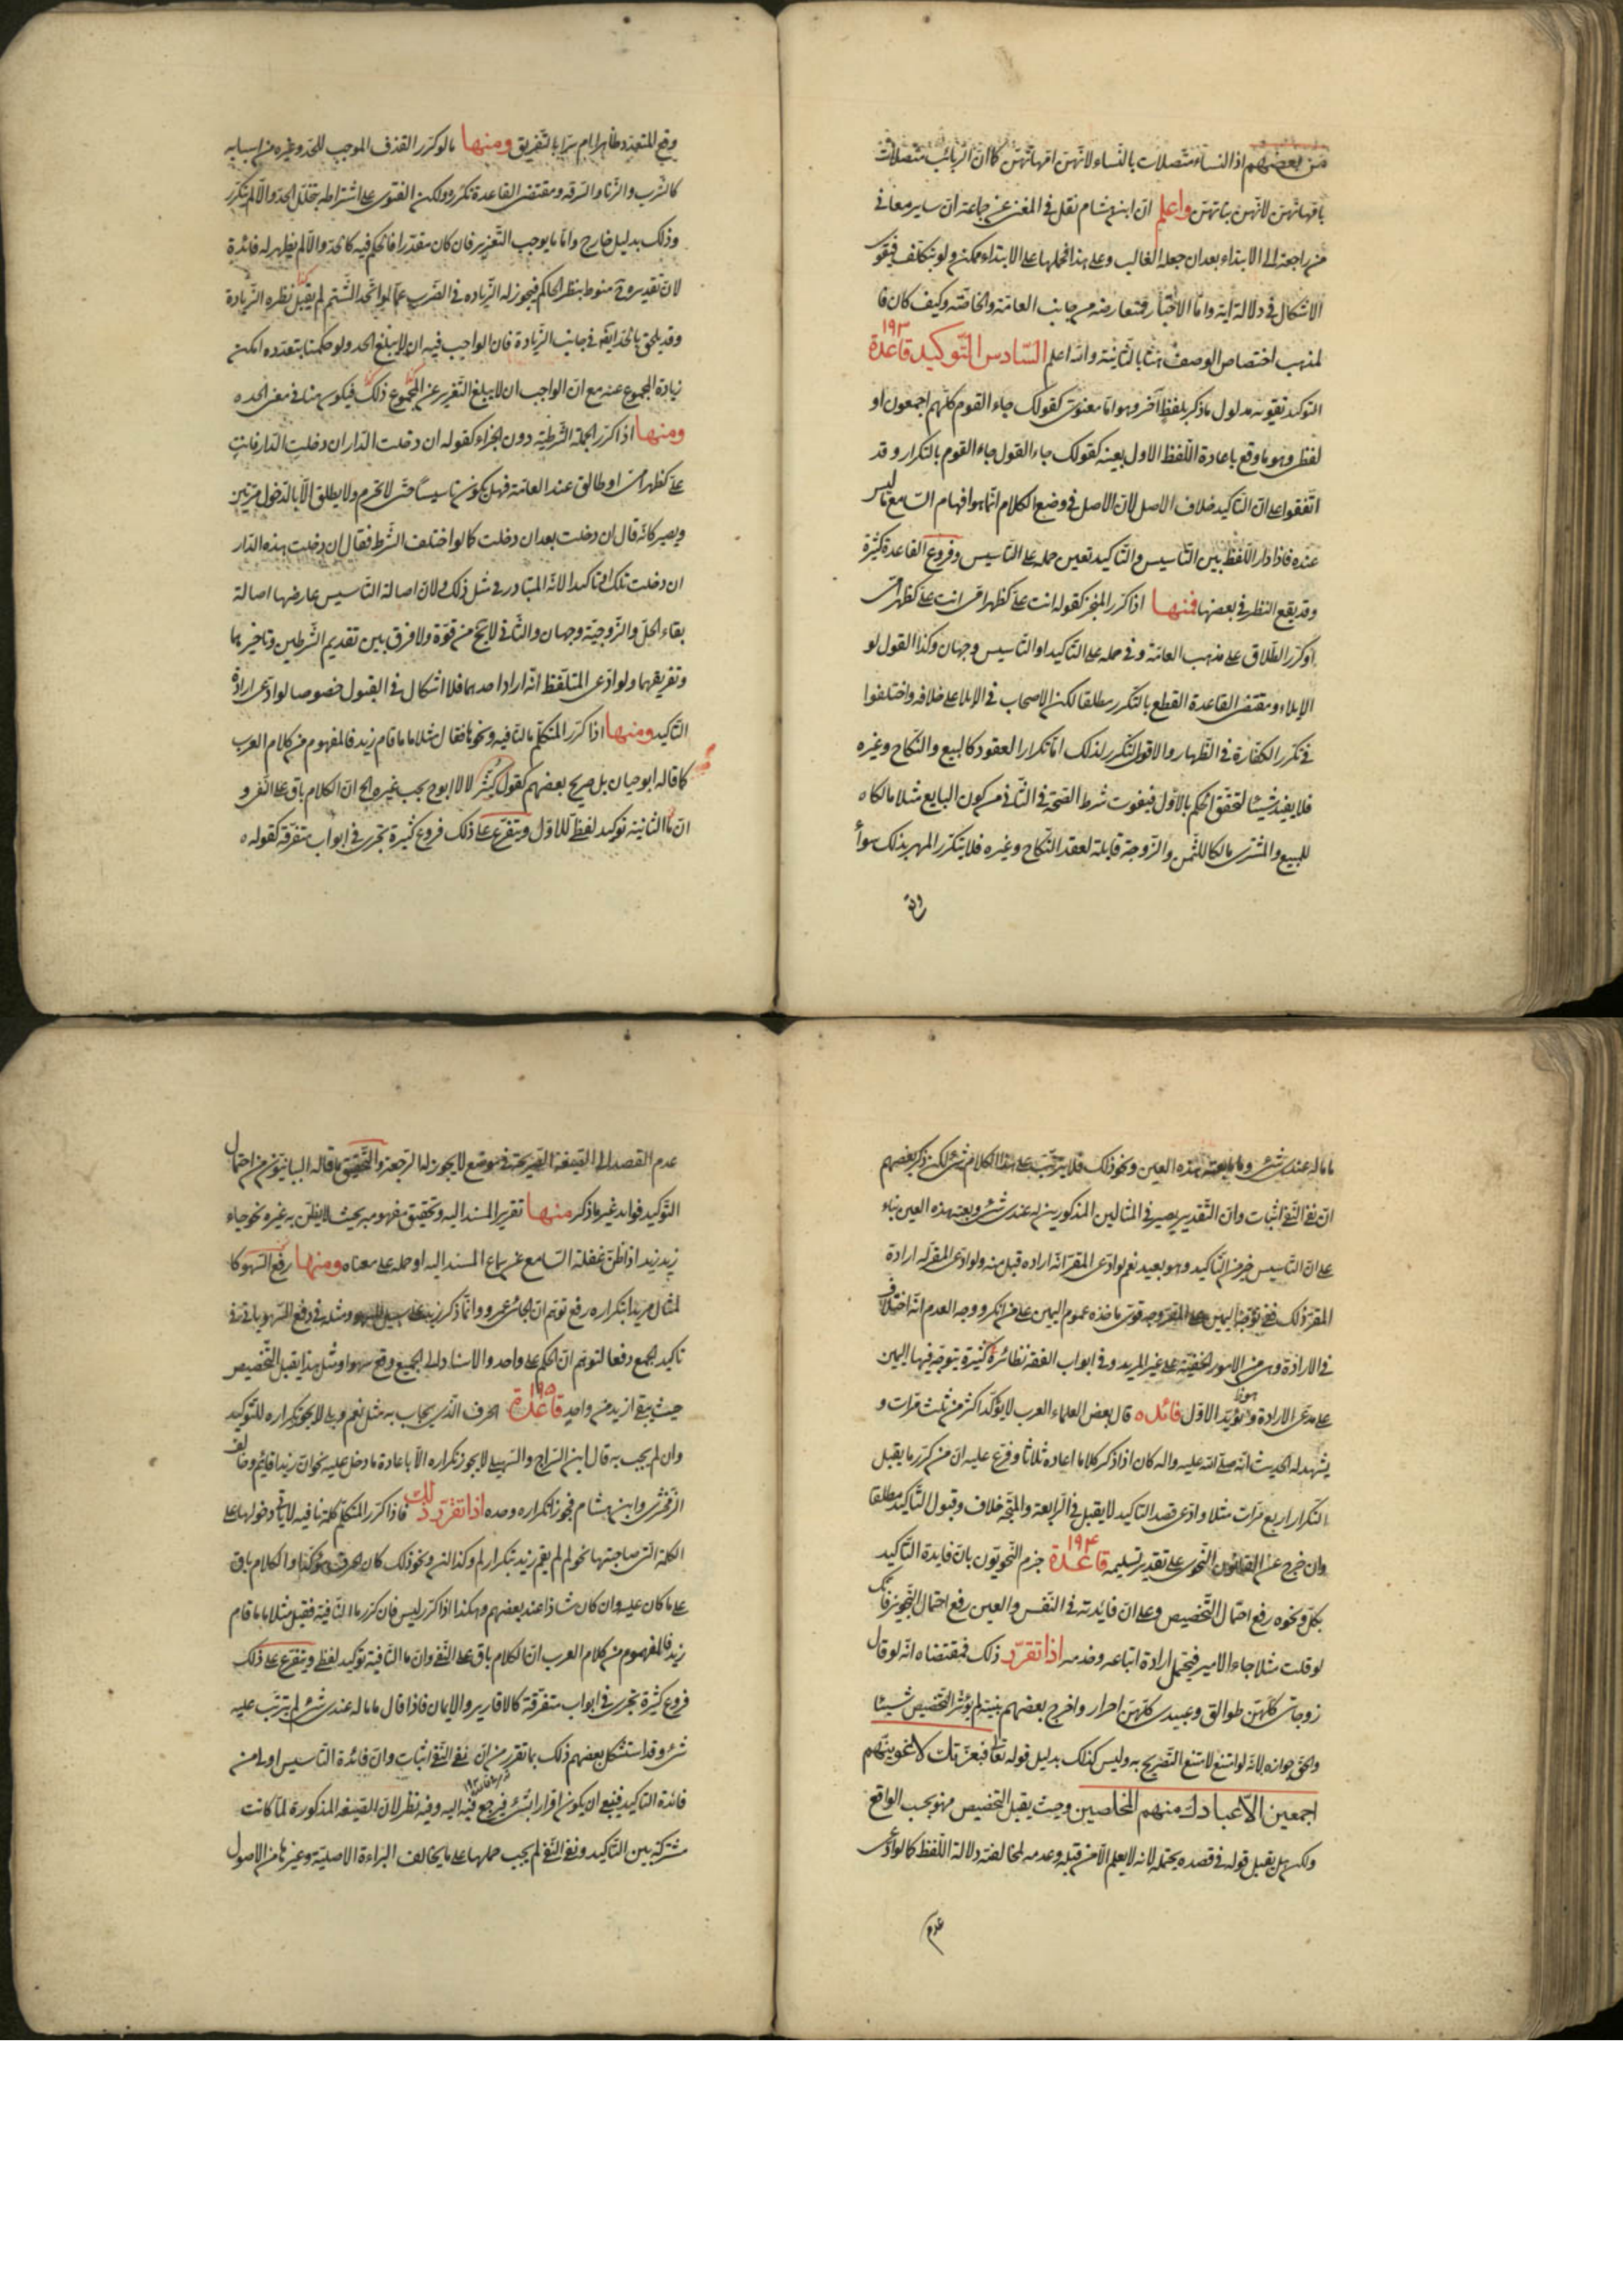 من بعضهم اذ النساء متصلات بالنساء لانهن امهاتهن كما ان الربائب متصلات
بامهاتهن لانهن بناتهن واعلم ان ابن هشام نقل في المغنى عن جماعة ان ساير معاني
من راجعة الى الابتداء بعد ان جعله الغالب وعلى هذا فحملها على الابتداء ممكن ولو بتكلف فيقوى
الاشكال في دلالة الآية واما الاخبار فمتعارضة من جانب العامة والخاصة وكيف كان فا
لمذهب اختصاص الوصف هنا بالثانية والله اعلم السادس التوكيد قاعدة ١٩٣
التوكيد تقوية مدلول ما ذكر بلفظ آخر وهو اما معنوى كقولك جاء القوم كلهم اجمعون او
لفظى وهو ما وقع باعادة اللفظ الاول بعينه كقولك جاء القول جاء القوم بالتكرار وقد
اتفقوا على ان التاكيد خلاف الاصل لان الاصل في وضع الكلام انما هو افهام السامع ما ليس
عنده فاذا دار اللفظ بين التاسيس والتاكيد تعين حمله على التاسيس وفروع القاعدة كثيرة
وقد يقع النظر في بعضها فمنها اذا كرر المنجز كقوله انت على كظهر امى انت على كظهر امى
او كرر الطلاق على مذهب العامة وفي حمله على التاكيد او التاسيس وجهان وكذا القول لو
الايلاء ومقتضى القاعدة القطع بالتكرر مطلقا لكن الاصحاب في الايلاء على خلافه واختلفوا
في تكرر الكفارة في الظهار والاقوى التكرر لذلك اما تكرار العقود كالبيع والنكاح وغيره
فلا يفيد شيئا لتحقق الحكم بالاول فيفوت شرط الصحة في الثاني من كون البايع مثلا مالكا
للمبيع والمشترى مالكا للثمن والزوجة قابلة لعقد النكاح وغيره فلا يتكرر المهر بذلك سواء
وقع
وقع المتعدد ظاهرا ام سرا بالتفريق ومنها ما لو كرر القذف الموجب للحد وغيره من اسبابه
كالشرب والزنا والسرقة ومقتضى القاعدة تكرره ولكن الفتوى على اشتراطه بتخلل الحد والا لم يتكرر
وذلك بدليل خارج واما ما يوجب التعزير فان كان مقدرا فالحكم فيه كالحد والا لم يظهر له فائدة
لان تقديره منوط بنظر الحاكم فيجوز له الزيادة في الضرب عما لو اتحد الشتم لم يقبل نظره الزيادة
وقد يلحق بالحد ايضا في جانب الزيادة فان الواجب فيه ان لا يبلغ الحد ولو حكمنا بتعدده امكن
زيادة المجموع عنه مع ان الواجب ان لا يبلغ التعزير عن المجموع ذلك فيكون هنا في معنى الحد
ومنها اذا كرر الجملة الشرطية دون الجزاء كقوله ان دخلت الدار ان دخلت الدار فانت
على كظهر امى او طالق عند العامة فهل يكون تاسيسا حتى لا تحرم ولا يطلق الا بالدخول مرتين
ويصير كانه قال ان دخلت بعد ان دخلت كما لو اختلف الشرط فقال ان دخلت هذه الدار
ان دخلت تلك او تاكيدا لانه المتبادر في مثل ذلك ولان اصالة التاسيس عارضها اصالة
بقاء الحل والزوجية وجهان والثاني لا يخ من قوة ولا فرق بين تقديم الشرطين وتاخيرهما
وتفريقهما ولو ادعى المتلفظ انه اراد احدهما فلا اشكال في القبول خصوصا لو ادعى ارادة
التاكيد ومنها اذا كرر المتكلم ما النافية ونحوها فقال مثلا ما ما قام زيد فالمفهوم من كلام العرب
كما قاله ابو حيان بل صرح بعضهم كقول كثير لا لا ابوح بحب غيره الخ ان الكلام باق على النفى و
ان ما الثانية توكيد لفظى للاول ويتفرع على ذلك فروع كثيرة تجرى في ابواب متفرقة كقوله
ما ما له عندى شئ وما ما بعته هذه العين ونحو ذلك فلا يترتب على هذا الكلام شئ لكن ذكر بعضهم
ان نفى النفى اثبات وان التقدير يصير في المثالين المذكورين له عندى شئ وبعته هذه العين بناء
على ان التاسيس خير من التاكيد وهو بعيد نعم لو ادعى المقر انه اراده قبل منه ولو ادعى المقر له ارادة
المقر ذلك ففي توجه اليمين على المقر وجه قوى ماخذه عموم اليمين على من انكر ووجه العدم انه اختلاف
في الارادة وهى من الامور الخفية على غير المريد وفي ابواب الفقه نظائر كثيرة يتوجه فيها اليمين
على مدعى الارادة وهو يؤيد الاول فائدة قال بعض العلماء العرب لا يؤكد اكثر من ثلث مرات و
يشهد له الحديث انه صلى الله عليه واله كان اذا ذكر كلاما اعاده ثلاثا وفرع عليه ان من كرر ما يقبل
التكرار اربع مرات مثلا وادعى قصد التاكيد لا يقبل في الرابعة والمتجه خلاف وقبول التاكيد مطلقا
وان خرج عن القانون النحوى على تقدير تسليمه قاعدة ١٩٤ جزم النحويون بان فايدة التاكيد
بكل ونحوه رفع احتمال التخصيص وعلى ان فايدته في النفس والعين رفع احتمال التجوز فانك
لو قلت مثلا جاء الامير فيحتمل ارادة اتباعه وخدمه اذا تقرر ذلك فمقتضاه انه لو قال
زوجاتى كلهن طوالق وعبيدى كلهن احرار واخرج بعضهم بنيته لم يؤثر التخصيص شيئا
والحق جوازه لانه لو امتنع لامتنع التصريح به وليس كذلك بدليل قوله تعالى فبعزتك لاغوينهم
اجمعين الا عبادك منهم المخلصين وحيث يقبل التخصيص فهو بحسب الواقع
ولكن هل يقبل قوله في قصده يحتمله لانه لا يعلم الا من قبله وعدمه لمخالفته دلالة اللفظ كما لو ادعى
عدم
عدم القصد الى الصيغة الصريحة في موضع لا يجوز له الرجعة والتحقيق ما قاله البيانيون من احتمال
التوكيد فوايد غير ما ذكر منها تقرير المسند اليه وتحقيق مفهومه بحيث لا يظن به غيره نحو جاء
زيد زيد اذا ظن غفلة السامع عن سماع المسند اليه او حمله على معناه ومنها رفع السهو كا
لمثال مريدا بتكراره رفع توهم ان الجائى عمرو وانما ذكر زيد على سبيل السهو ومثله في دفع السهو ياتى في
تاكيد الجمع دفعا لتوهم ان الحكم على واحد والاسناد الى الجميع وقع سهوا ومثل هذا يقبل التخصيص
حيث يبقى ازيد من واحد قاعدة ١٩٥ الحرف الذى يجاب به مثل نعم وبلى لا يجوز تكراره للتوكيد
وان لم يجب به قال ابن السراج والسهيلى لا يجوز تكراره الا باعادة ما دخل عليه نحو ان زيدا قائم وخالف
الزمخشرى وابن هشام فجوزا تكراره وحده اذا تقرر ذلك فاذا كرر المتكلم كلمة نافية لا ياتى دخولها على
الكلمة التى صاحبتها نحو لم لم يقم زيد بتكرار لم وكذا لن ونحو ذلك كان الحرف مؤكدا والكلام باق
على ما كان عليه وان كان شاذا عند بعضهم وهكذا اذا كرر ليس فان كرر ما النافية فقيل مثلا ما ما قام
زيد فالمفهوم من كلام العرب ان الكلام باق على النفى وان ما الثانية توكيد لفظى ويتفرع على ذلك
فروع كثيرة تجرى في ابواب متفرقة كالاقارير والايمان فاذا قال ما ما له عندى شئ لم يترتب عليه
شئ وقد استشكل بعضهم ذلك بما تقرر من ان نفى النفى اثبات وان فائدة التاسيس اولى من
فائدة التاكيد فينبغى ان يكون اقرارا بشئ فيرجع فيه اليه وفيه نظر لان الصيغة المذكورة لما كانت
مشتركة بين التاكيد ونفى النفى لم يجب حملها على ما يخالف البراءة الاصلية وغيرها من الاصول